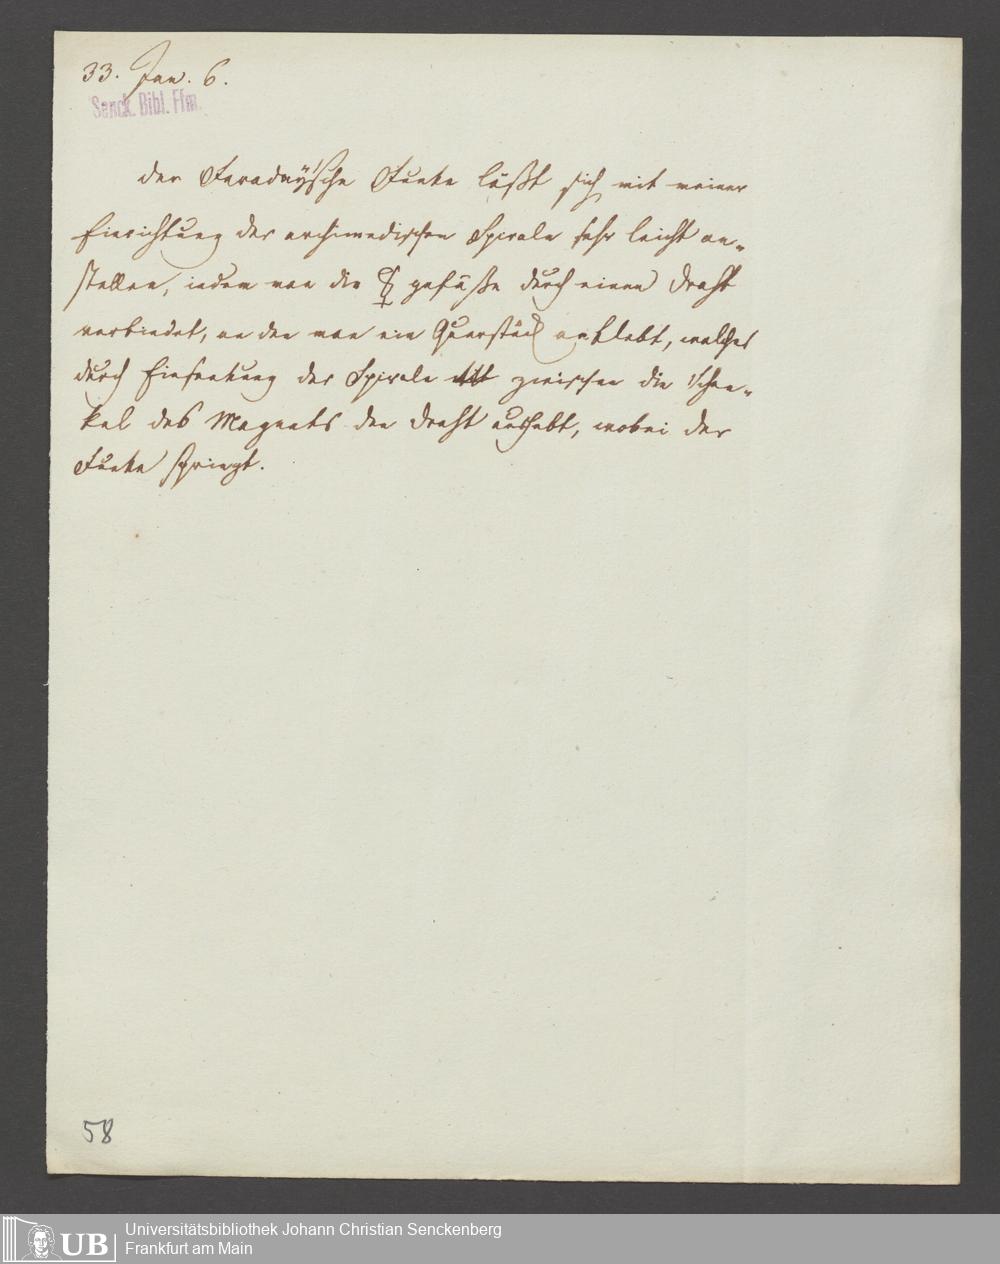 33. Jan. 6.
Senck. Bibl. Ffm.
der Faraday'sche Funke läßt sich mit meiner
Einrichtung der archimedischen Spirale sehr leicht an-
stellen, indem man die ☿ gefäße durch einen Draht
verbindet, an den man ein Querstück anklebt, welches
durch Einsenkung der Spirale zwischen die Schen-
kel des Magnets den Draht aushebt, wobei der
Funke springt.
58
UB
Universitätsbibliothek Johann Christian Senckenberg
Frankfurt am Main